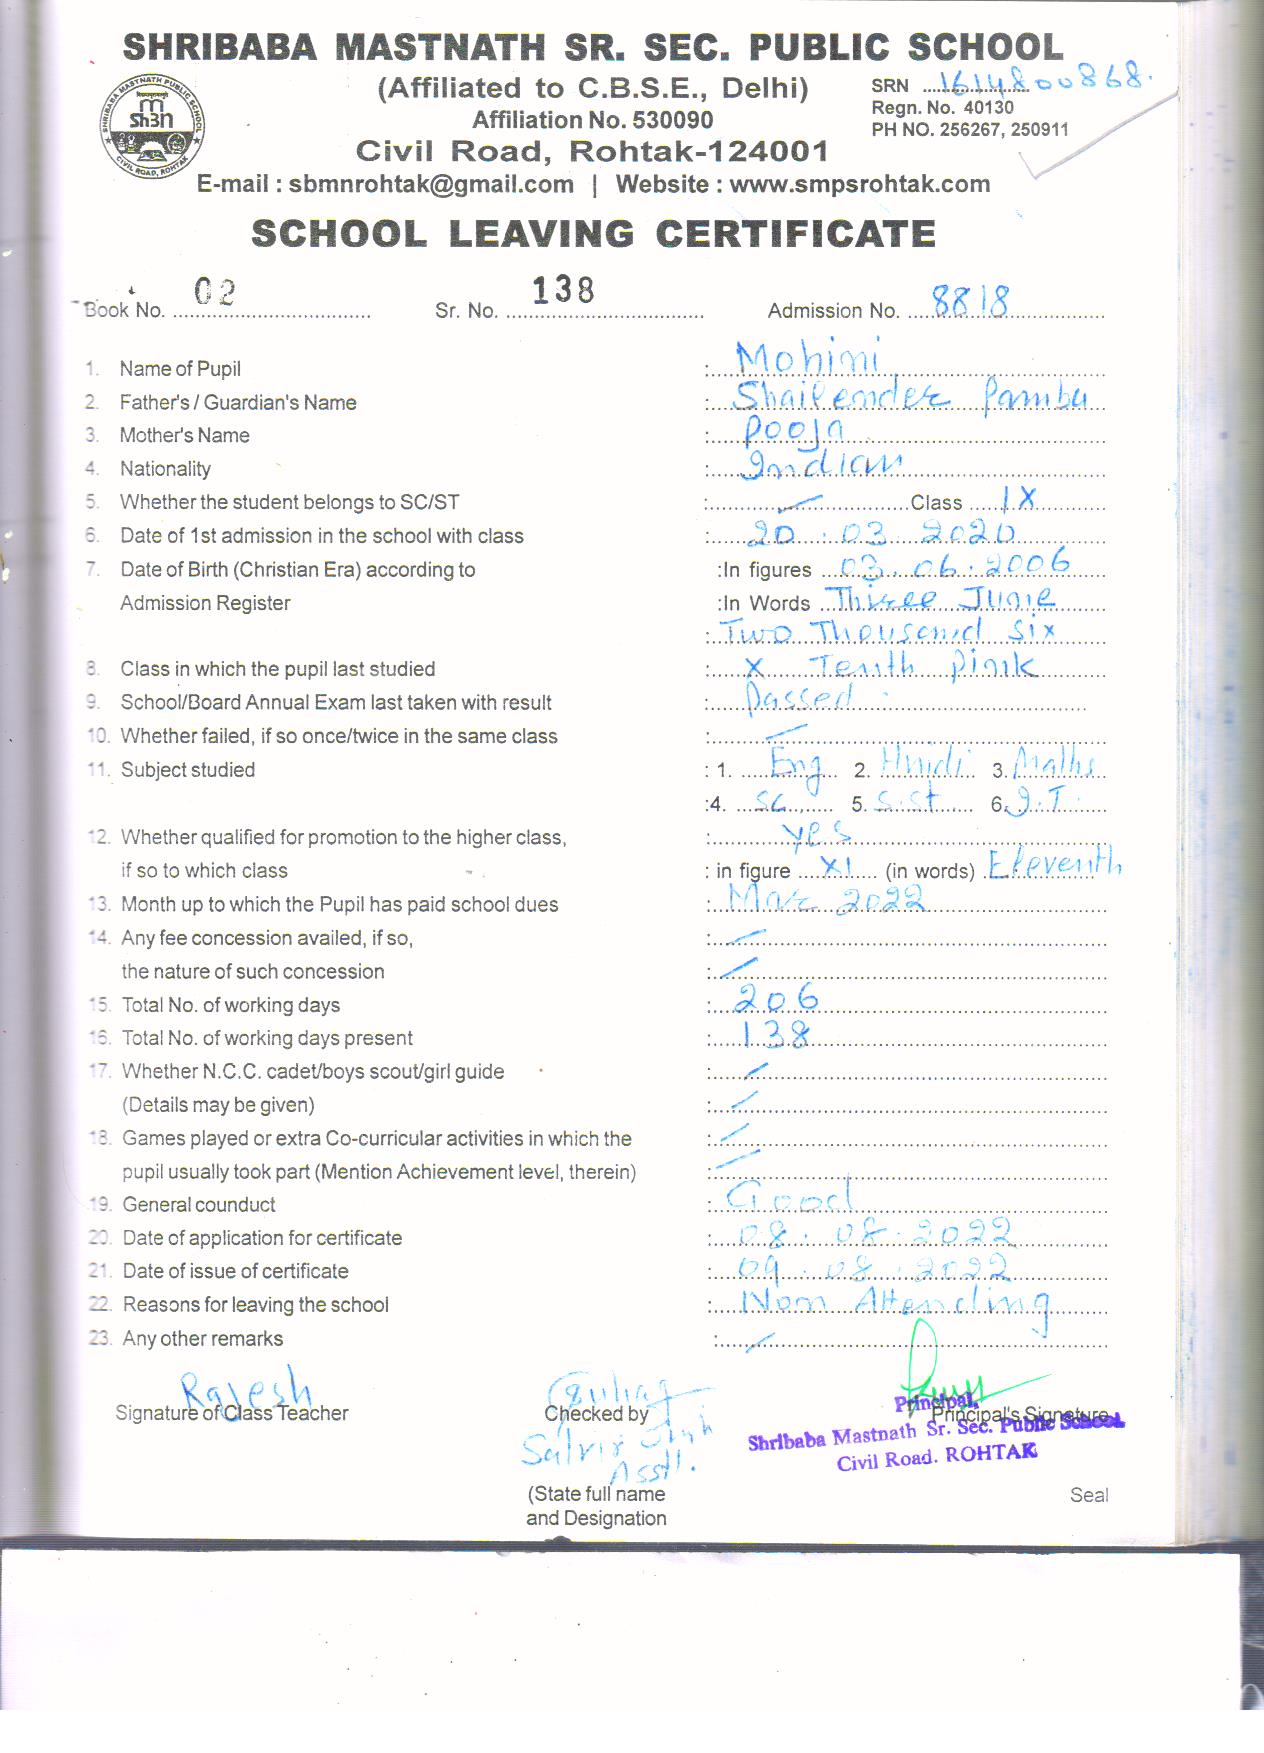 SHRIBABA MASTNATH SR. SEC. PUBLIC SCHOOL
(Affiliated to C.B.S.E., Delhi)
SRN 1614800868.
Affiliation No. 530090
Regn. No. 40130
PH NO. 256267, 250911
Civil Road, Rohtak-124001
E-mail : sbmnrohtak@gmail.com | Website : www.smpsrohtak.com
SCHOOL LEAVING CERTIFICATE
Book No. 02 Sr. No. 138 Admission No. 8818
1. Name of Pupil : Mohini
2. Father's / Guardian's Name : Shailender
3. Mother's Name : Pooja
4. Nationality : Indian
5. Whether the student belongs to SC/ST : Class IX
6. Date of 1st admission in the school with class : 20.03.2020
7. Date of Birth (Christian Era) according to :In figures 03.06.2006
Admission Register :In Words Three June
: Two Thousend Six
8. Class in which the pupil last studied : X Tenth Pink
9. School/Board Annual Exam last taken with result : Passed
10. Whether failed, if so once/twice in the same class :
11. Subject studied : 1. Eng 2. Hindi 3. Maths
:4. Sc 5. S.St 6. I.T.
12. Whether qualified for promotion to the higher class, : yes
if so to which class : in figure XI (in words) Eleventh
13. Month up to which the Pupil has paid school dues : Mar 2022
14. Any fee concession availed, if so, :
the nature of such concession :
15. Total No. of working days : 206
16. Total No. of working days present : 138
17. Whether N.C.C. cadet/boys scout/girl guide :
(Details may be given) :
18. Games played or extra Co-curricular activities in which the :
pupil usually took part (Mention Achievement level, therein) :
19. General counduct : Good
20. Date of application for certificate : 08.08.2022
21. Date of issue of certificate : 09.08.2022
22. Reasons for leaving the school : Non Attending
23. Any other remarks :
Rajesh
Signature of Class Teacher Checked by Principal's Signature
Principal,
Shribaba Mastnath Sr. Sec. Public School
Civil Road. ROHTAK
Asstt.
(State full name Seal
and Designation